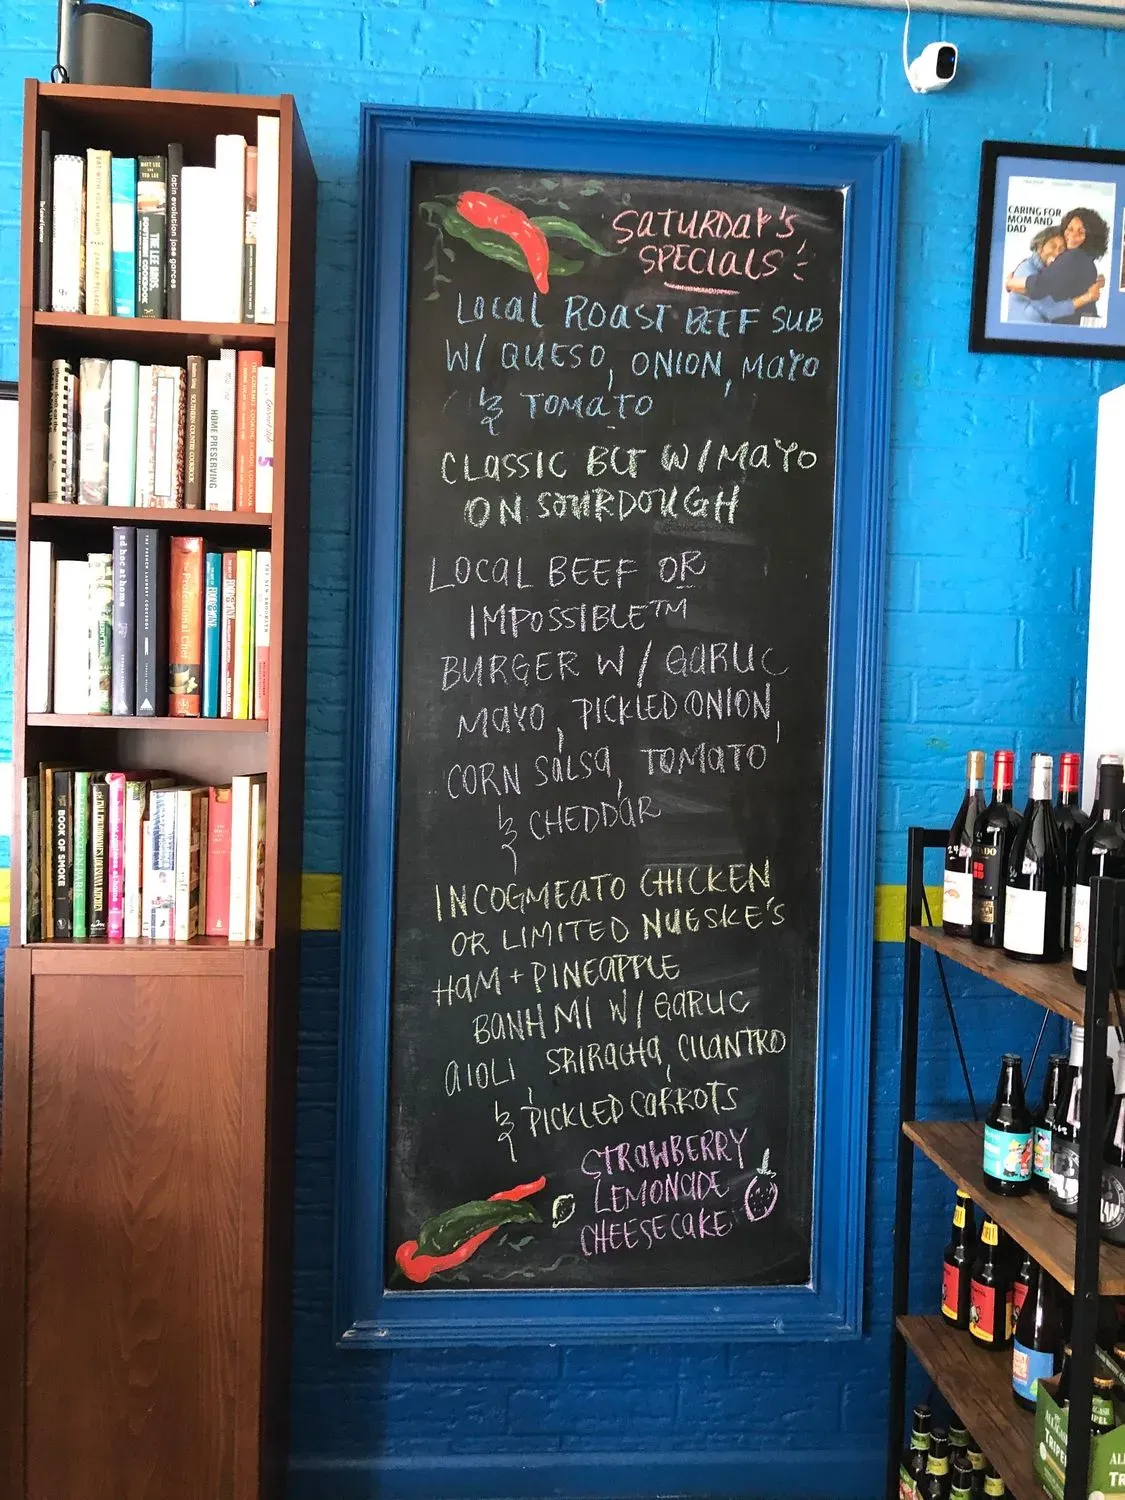 SATURDAY'S
SPECIALS
LOCAL ROAST BEEF SUB
W/ QUESO, ONION, MAYO
& TOMATO
CLASSIC BLT W/MAYO
ON SOURDOUGH
LOCAL BEEF OR
IMPOSSIBLE™
BURGER W/ GARLIC
MAYO, PICKLED ONION,
CORN SALSA, TOMATO
& CHEDDAR
INCOGMEATO CHICKEN
OR LIMITED NUESKE'S
HAM + PINEAPPLE
BANH MI W/ GARLIC
AIOLI, SRIRACHA, CILANTRO
& PICKLED CARROTS
STRAWBERRY
LEMONADE
CHEESECAKE
CARING FOR
MOM AND
DAD
MATT LEE and TED LEE
THE LEE BROS. SOUTHERN COOKBOOK
latin evolution jose garces
SOUTHERN COUNTRY COOKBOOK
HOME PRESERVING
ad hoc at home
THE FRENCH LAUNDRY COOKBOOK
The Professional Chef
BOOK OF SMOKE
ALLAGASH
TRIPEL